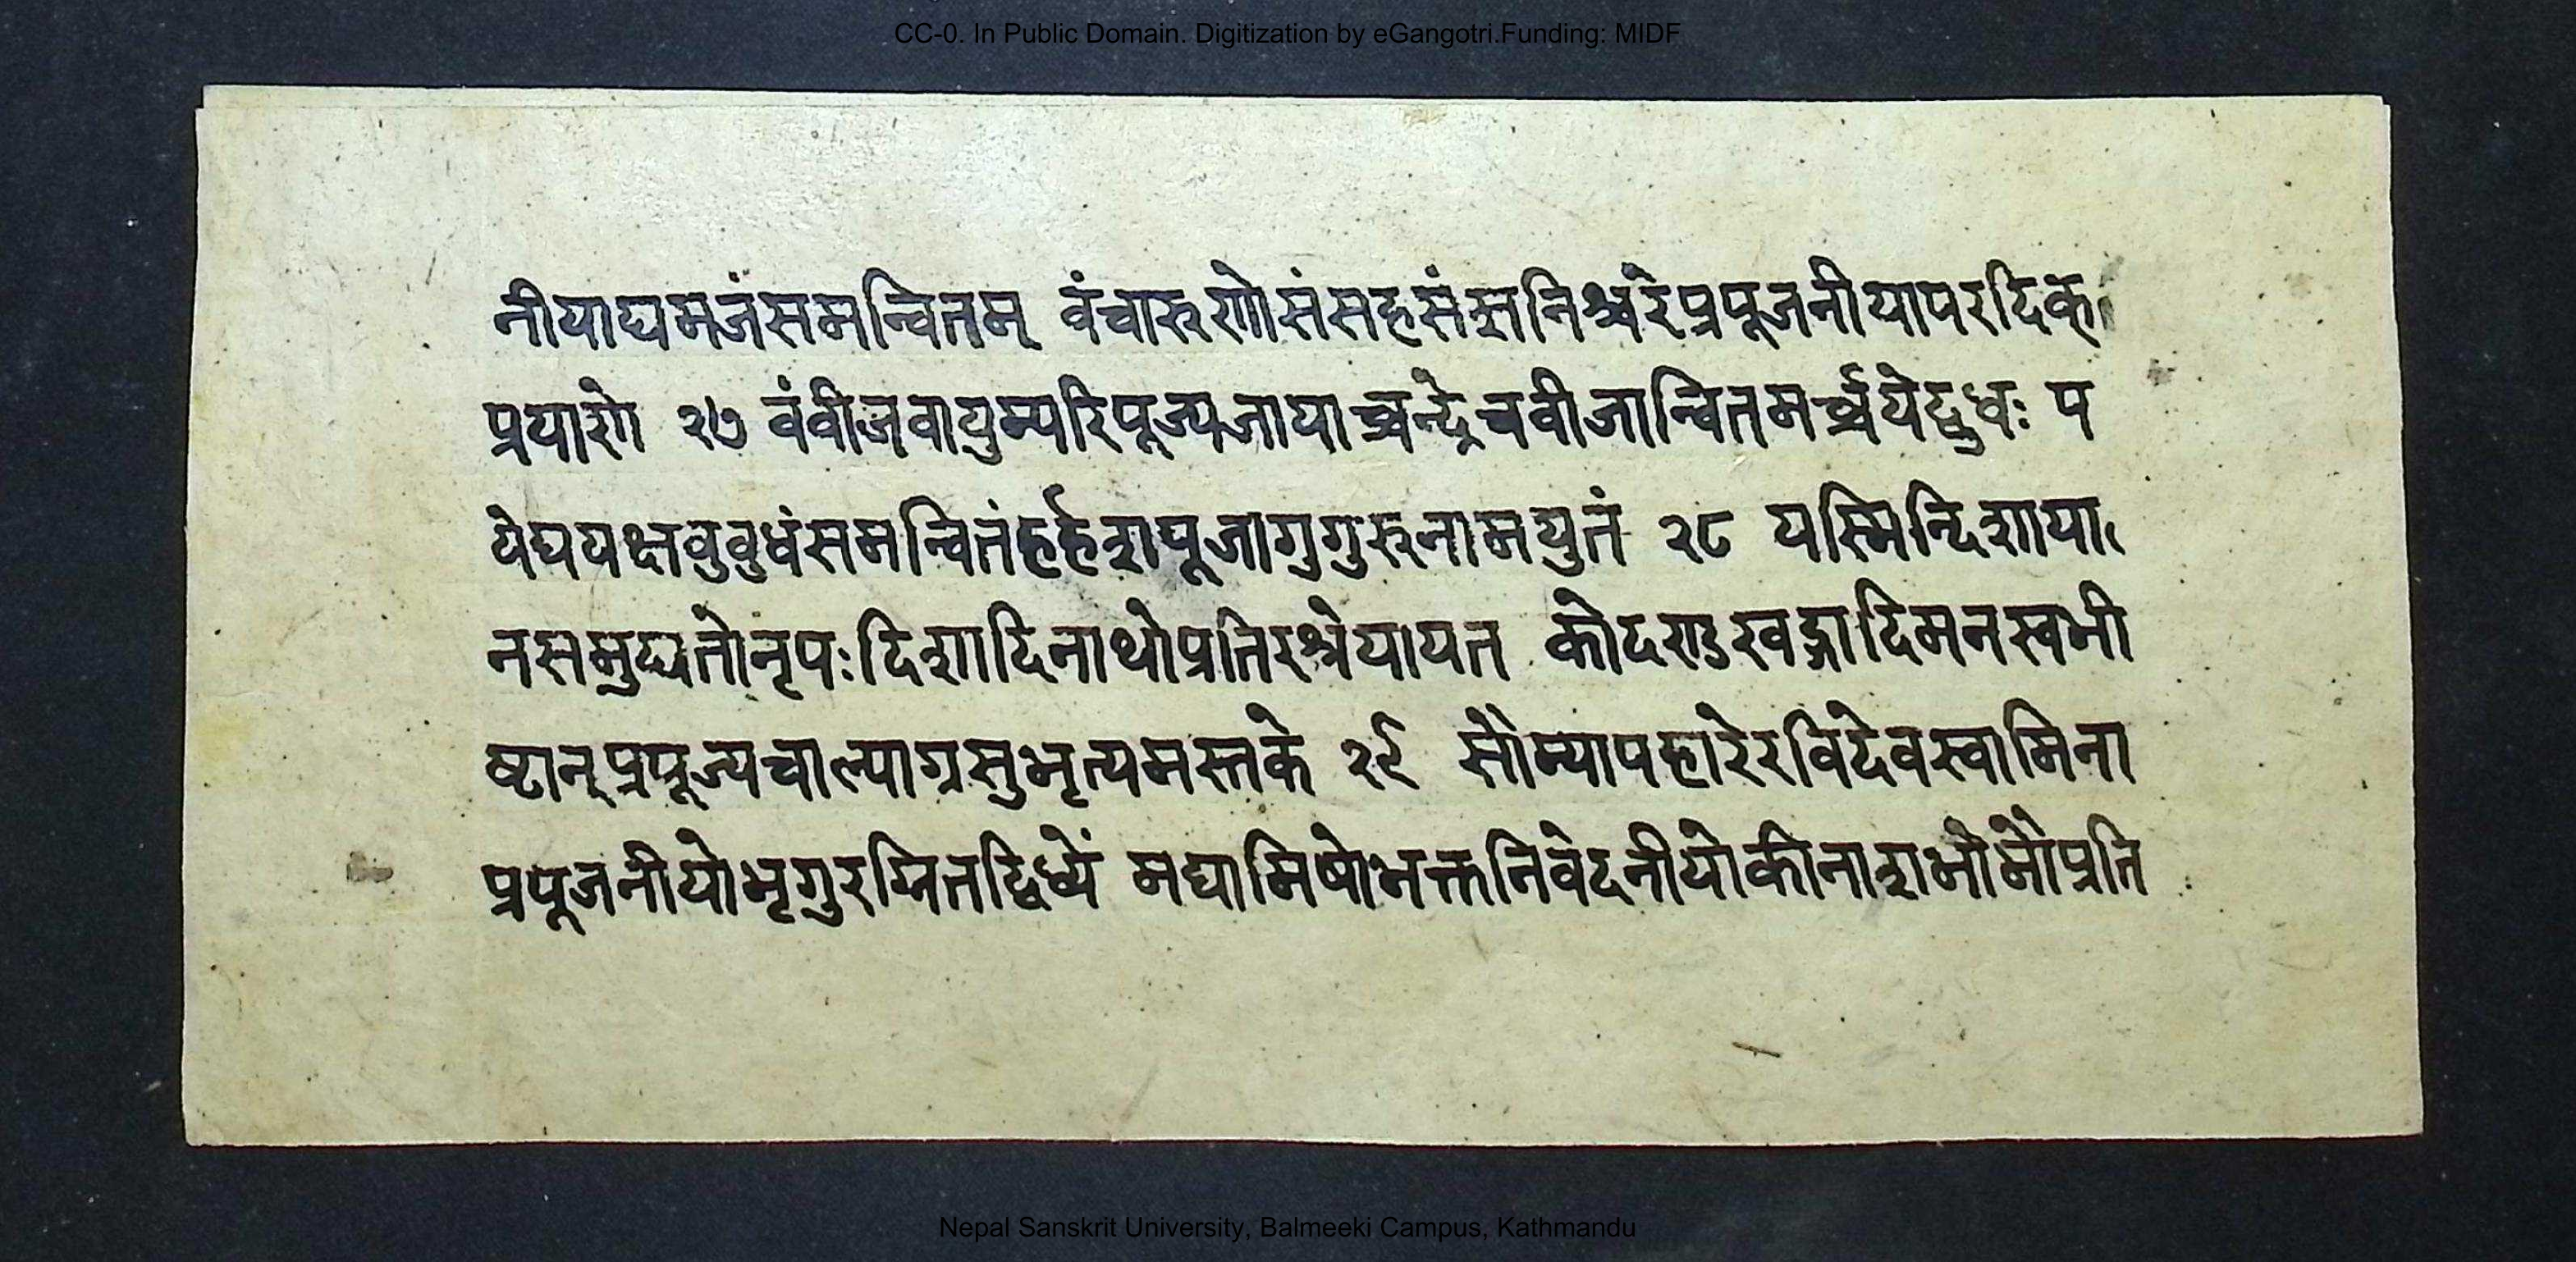 CC-0. In Public Domain. Digitization by eGangotri.Funding: MIDF
नीयाद्यमजंसमन्वितम् वंचारुणोसंसहसंस्रनिश्चरेप्रपूजनीयापरदिक्
प्रयाणे २७ वंवीजवायुम्परिपूज्यजायाच्चन्द्रेचवीजान्वितमर्च्चयेद्बुधः प
येघयक्षवुवुधंसमन्वितंहर्हशपूजागुगुरुनामयुतं २८ यस्मिन्दिशाया
नसमुद्यतोनृपःदिशादिनाथोप्रतिरश्रेयायत कोदण्डखड्गादिमनस्वभी
ष्टान्प्रपूज्यचाल्पाग्रसुभृत्यमस्तके २९ सौम्यापहारेरविदेवस्वामिना
प्रपूजनीयोभृगुरग्नितद्विध्यें मद्यामिषोभक्तनिवेदनीयोकीनाशभौमौप्रति
Nepal Sanskrit University, Balmeeki Campus, Kathmandu